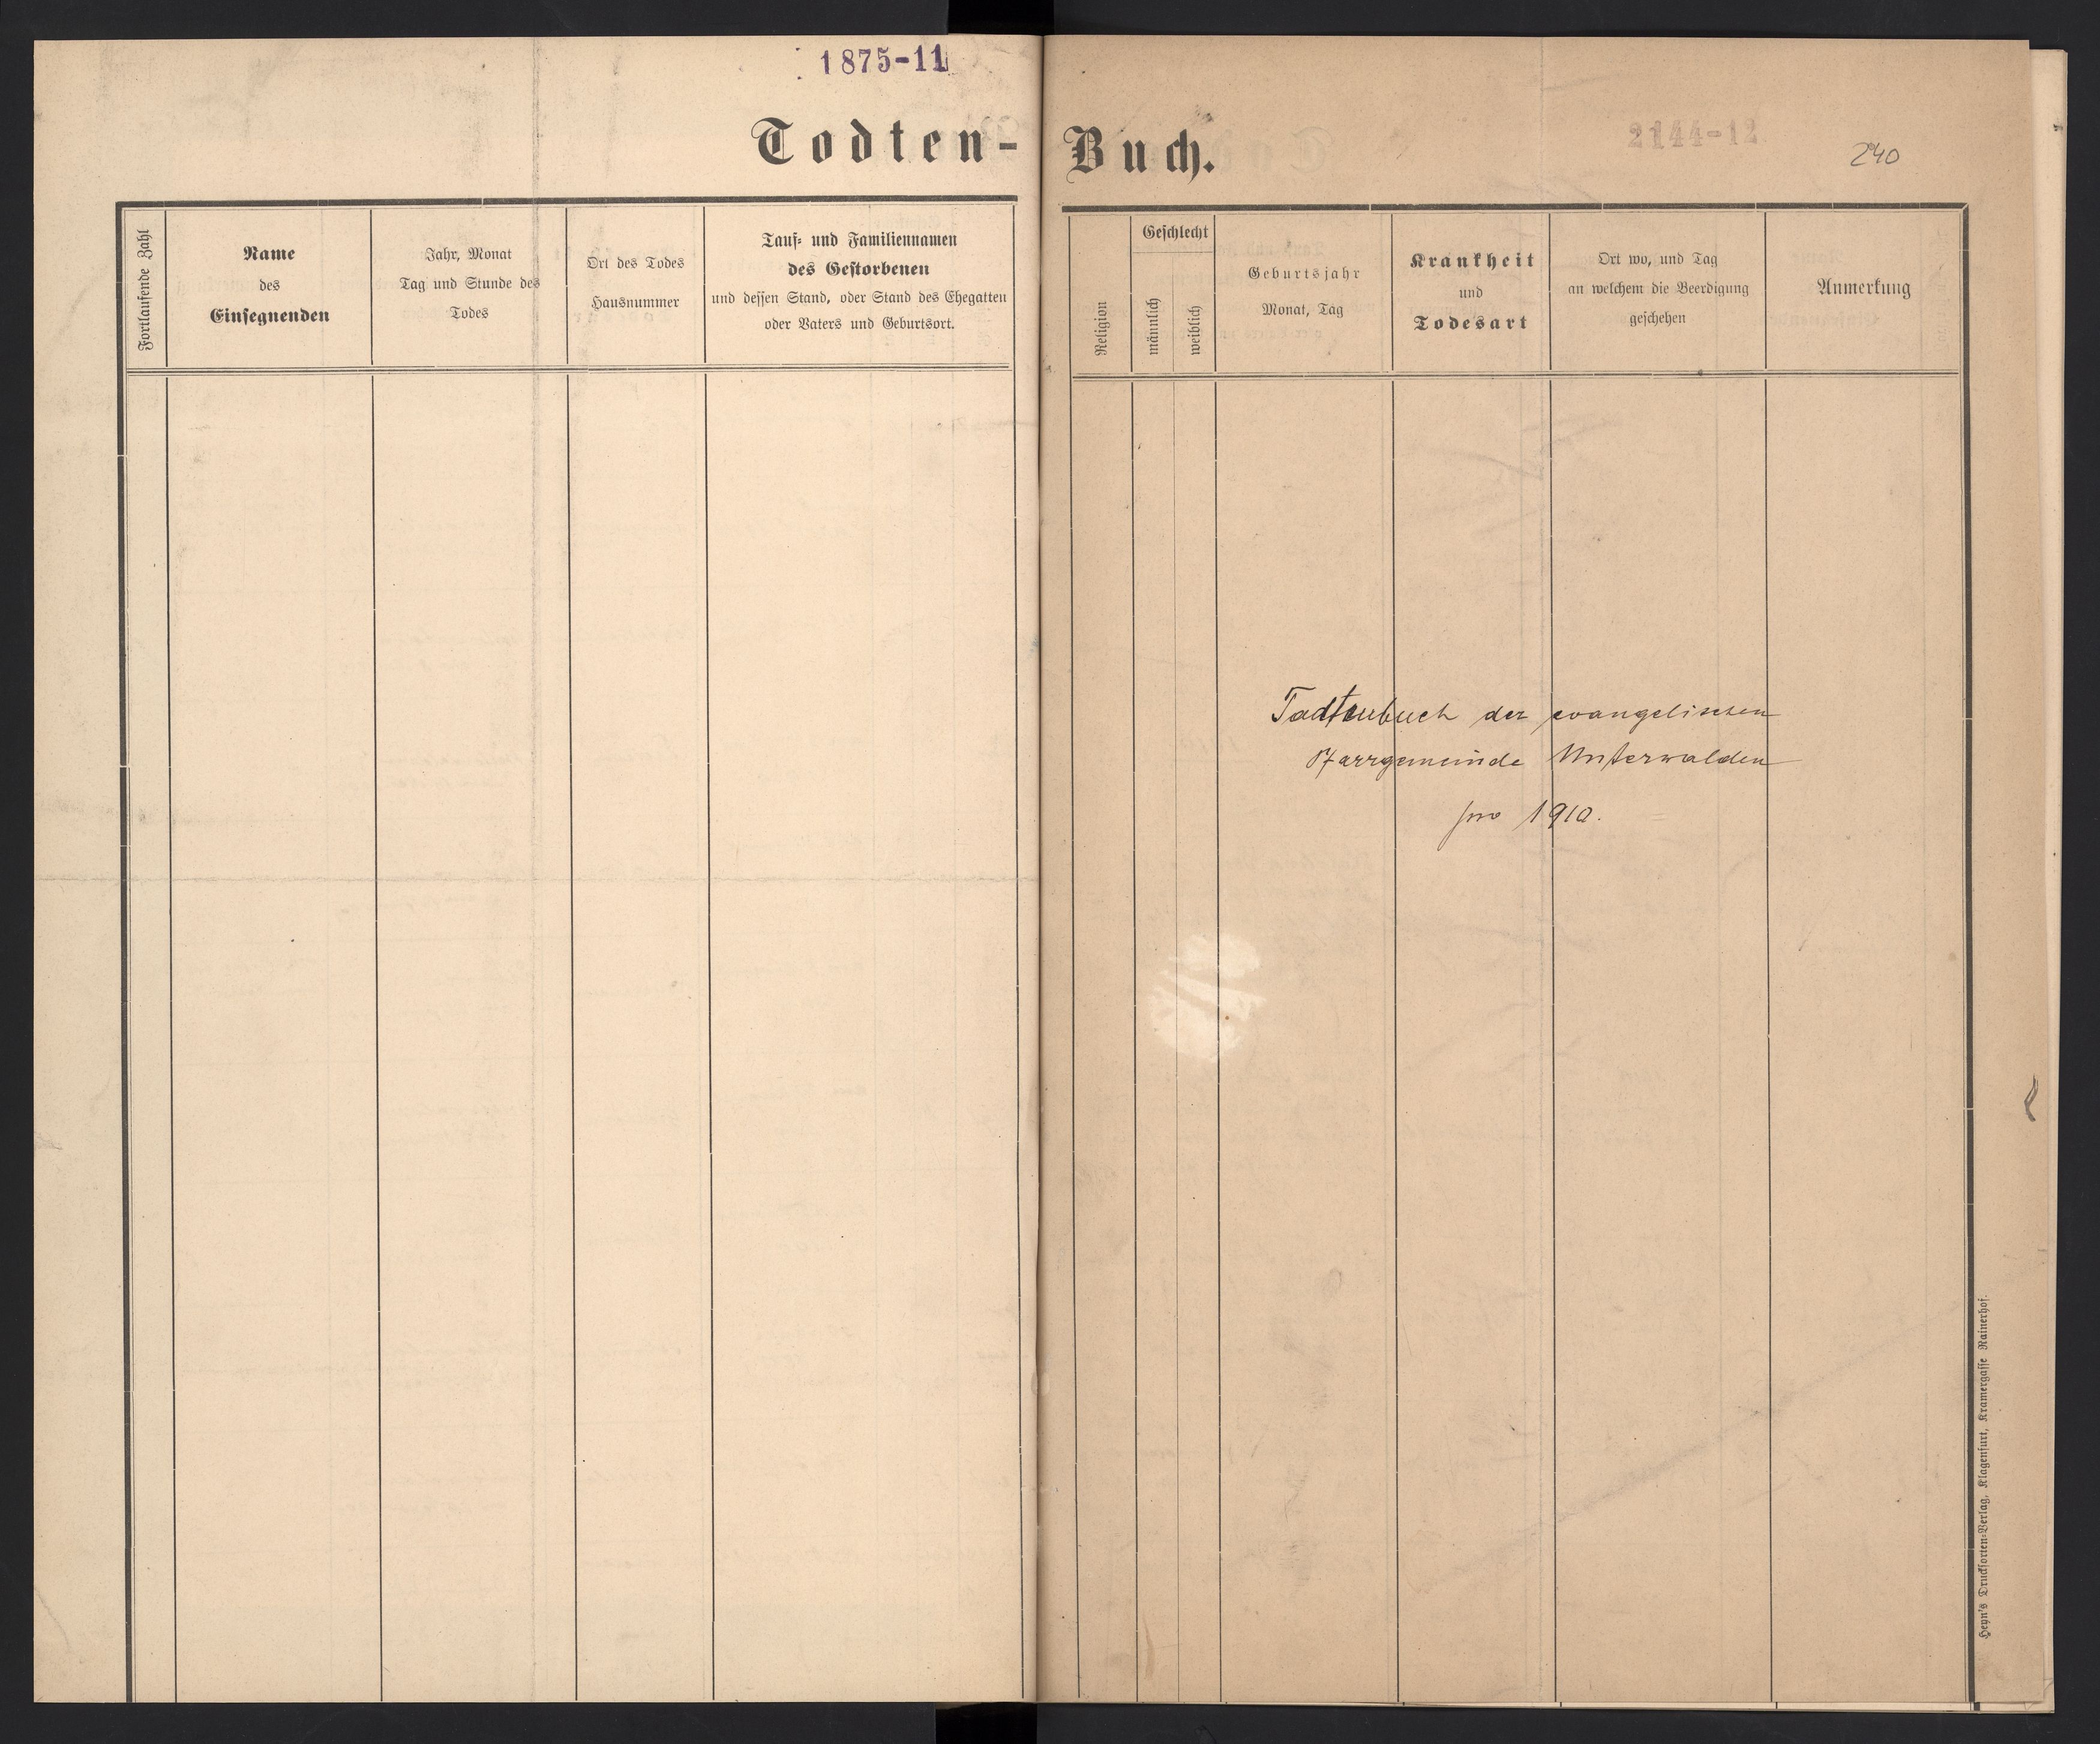 1875-11
Todten-
Buch.
2144-12
240
Fortlaufende Zahl
Name
des
Einsegnenden
Jahr, Monat
Tag und Stunde des
Todes
Ort des Todes
Hausnummer
Tauf- und Familiennamen
des Gestorbenen
und dessen Stand, oder Stand des Ehegatten
oder Vaters und Geburtsort.
Religion
Geschlecht
männlich
weiblich
Geburtsjahr
Monat, Tag
Krankheit
und
Todesart
Ort wo, und Tag
an welchem die Beerdigung
geschehen
Anmerkung
Todtenbuch der evangelischen
Pfarrgemeinde Unterwalden
pro 1910.
Heyn's Drucksorten-Verlag, Klagenfurt, Kramergasse Rainerhof.